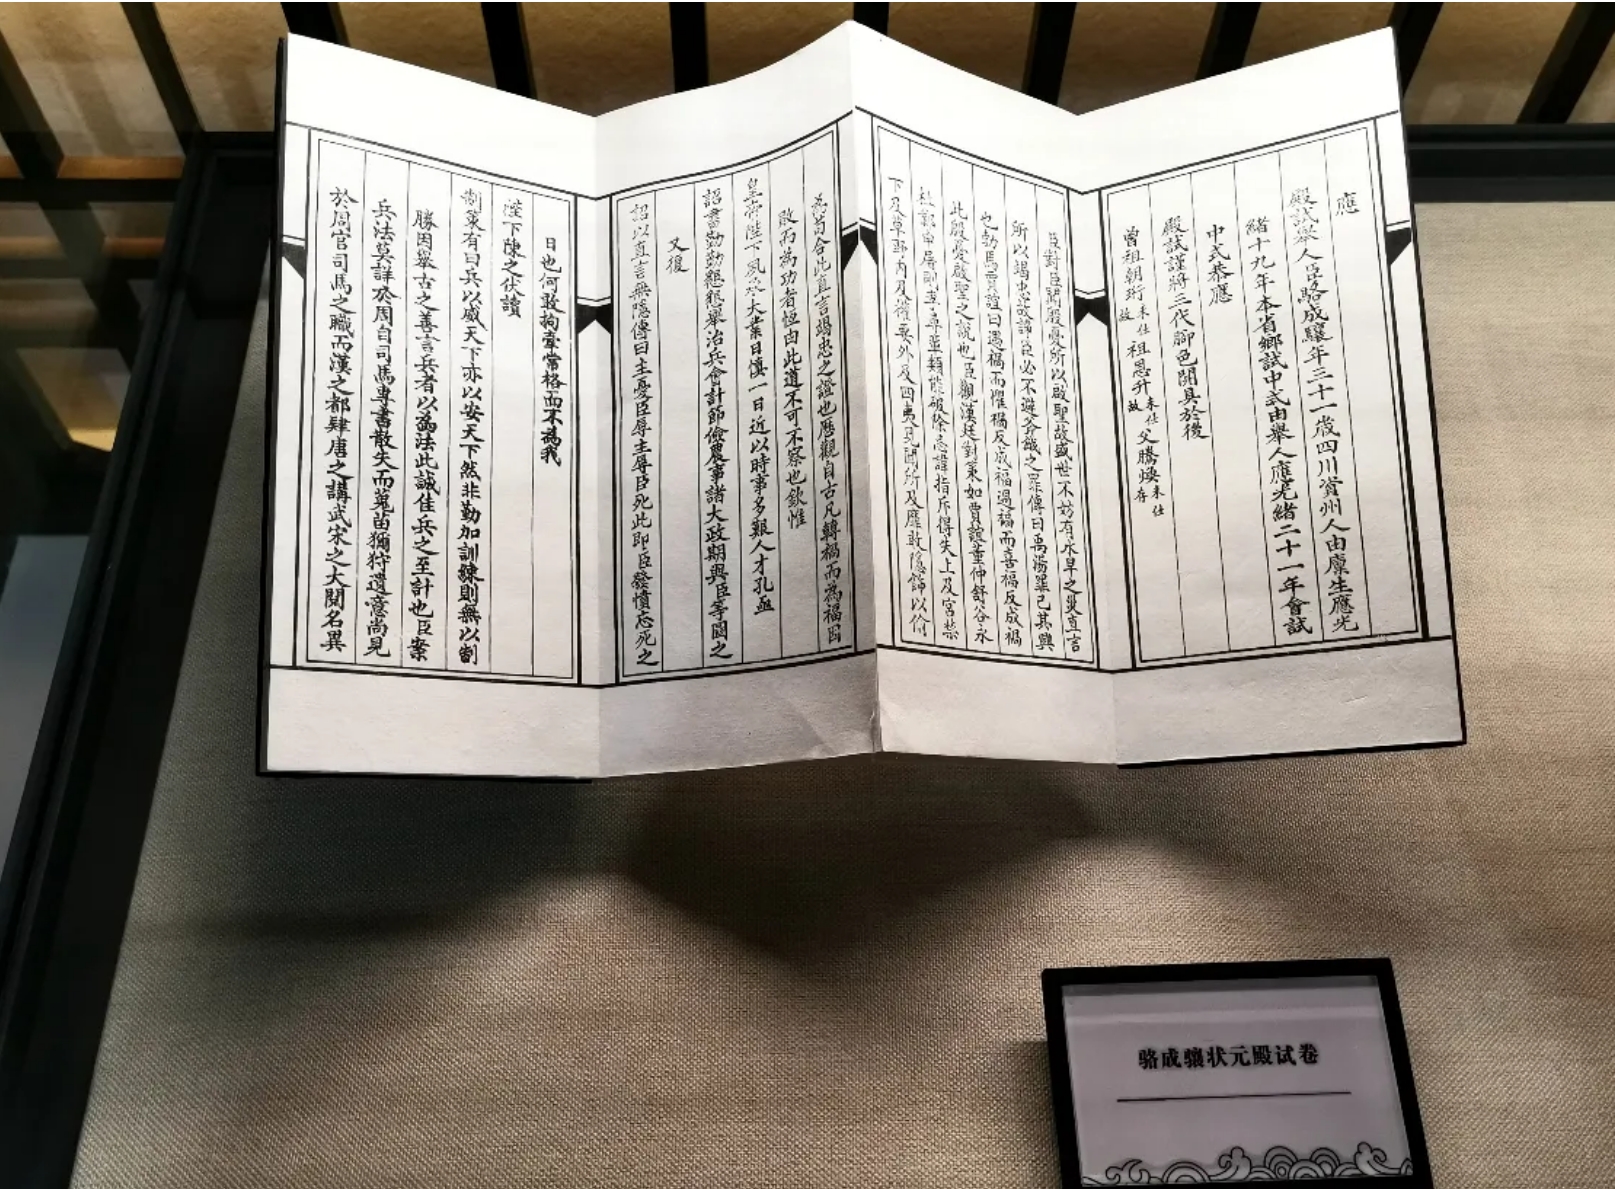 應
殿試舉人臣駱成驤年三十一歲四川資州人由廩生應光
緒十九年本省鄉試中式由舉人應光緒二十一年會試
中式恭應
殿試謹將三代腳色開具於後
曾祖朝珩未仕故 祖恩升未仕故 父騰煥未仕存
臣對臣聞殷憂所以啟聖故盛世不妨有水旱之災直言
所以竭忠故諍臣必不避斧鉞之罪傳曰禹湯罪己其興
也勃焉賈誼曰遇禍而懼禍反成福遇福而喜福反成禍
此殷憂啟聖之說也臣觀漢廷對策如賈誼董仲舒谷永
杜鄴申屠剛李尋輩類能破除忌諱指斥得失上及宮禁
下及草野內及權要外及四夷見聞所及靡敢隱飾以偷
為苟合此直言竭忠之證也歷觀自古凡轉禍而為福因
敗而為功者恆由此道不可不察也欽惟
皇帝陛下夙承大業日慎一日近以時事多艱人才孔亟
詔書勤勤懇懇舉治兵會計節儉農事諸大政期與臣等圖之
又復
詔以直言無隱傳曰主憂臣辱主辱臣死此即臣發憤忘死之
日也何敢拘牽常格而不為我
陛下陳之伏讀
制策有曰兵以威天下亦以安天下然非勤加訓練則無以制
勝因舉古之善言兵者以為法此誠佳兵之至計也臣案
兵法莫詳於周自司馬專書散失而蒐苗獮狩遺意尚見
於周官司馬之職而漢之都肄唐之講武宋之大閱名異
骆成骧状元殿试卷